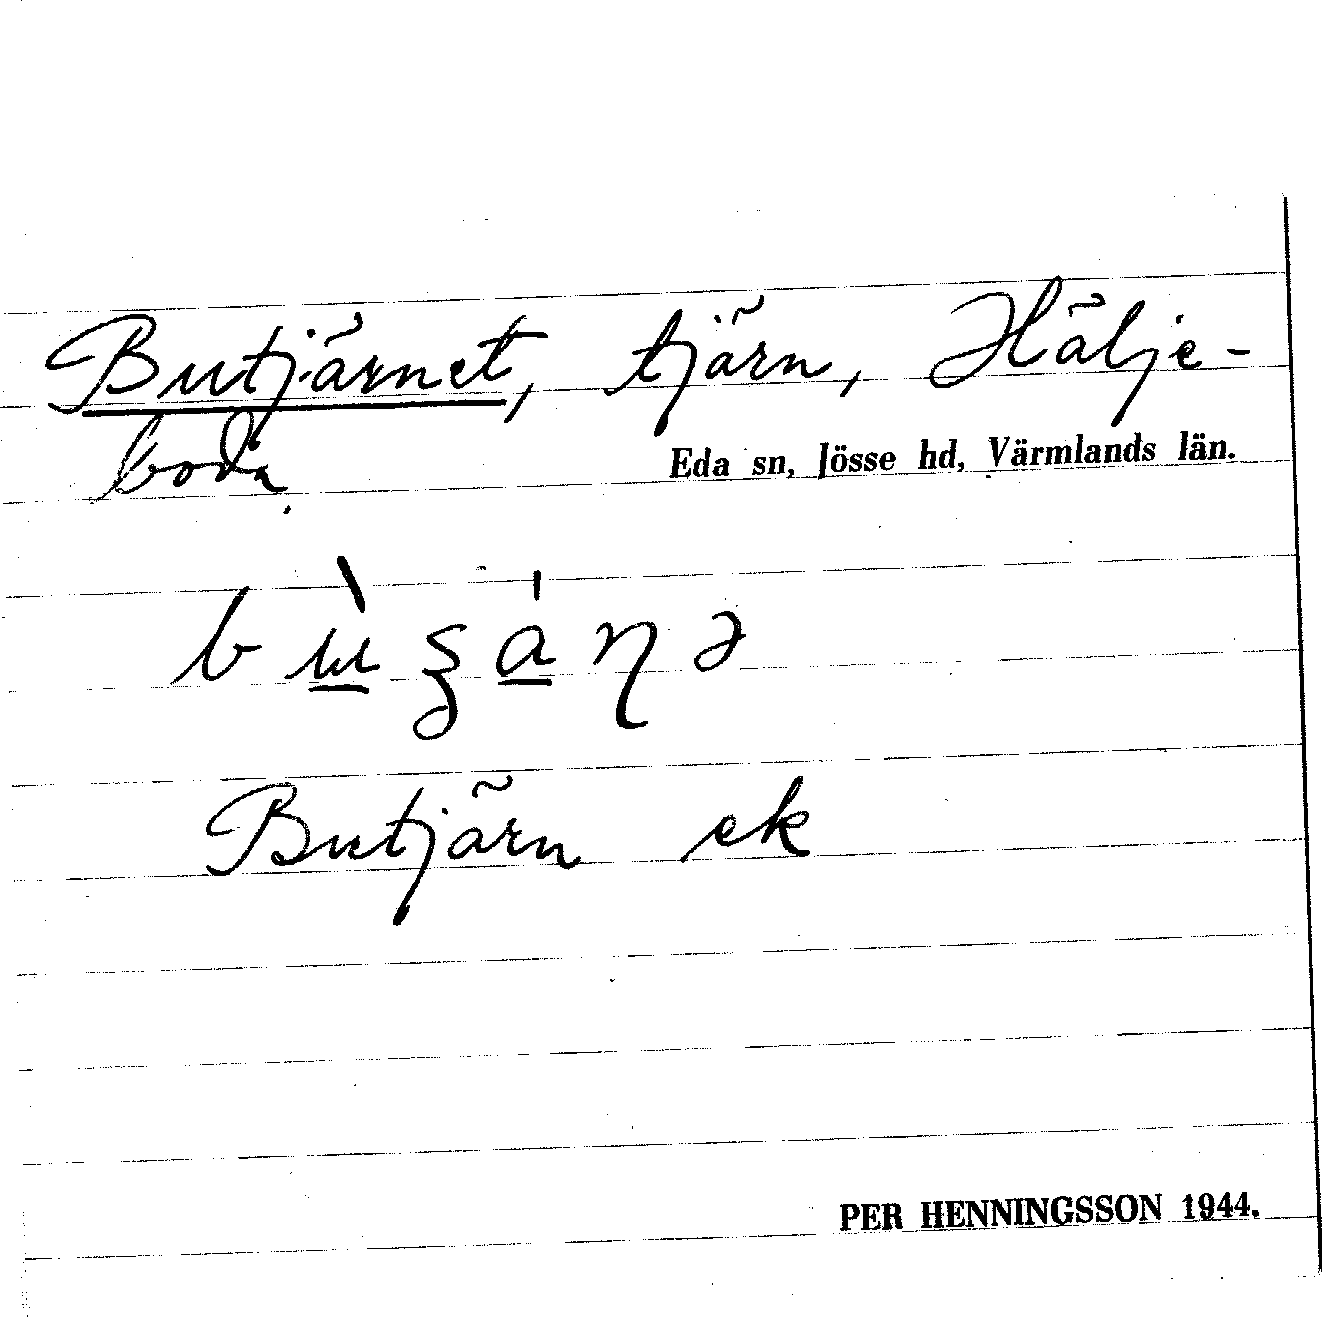 Butjärnet, tjärn, Hälje-
boda.
Eda sn, Jösse hd, Värmlands län.
Butjärn ek
PER HENNINGSSON 1944.